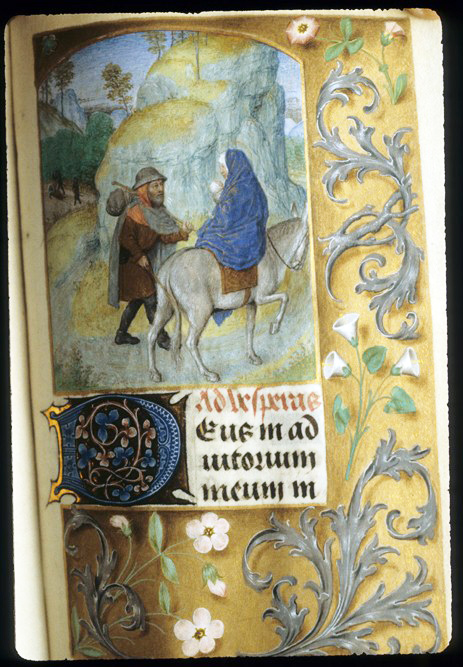 Ad vesperas
Deus in ad
iutorium
meum in